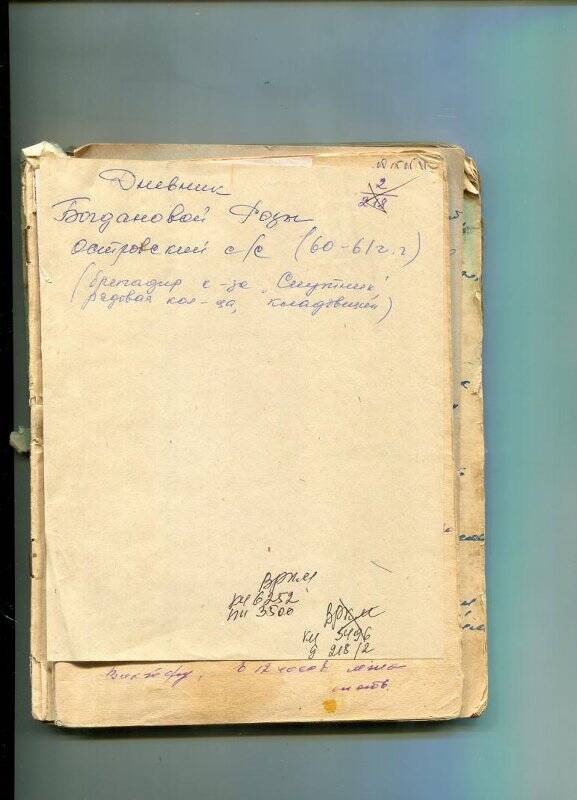 2
218
Дневник
Богдановой Розы
островский с/с (60-61г.г)
(бригадир к-за „Спутник"
рядовая кол-ца, кладовщик)
ВРКМ
КП 6252
ПИ 3500
ВРКМ
КП 5496
Д 218/2
Виктору, в 12 часов легла
спать.